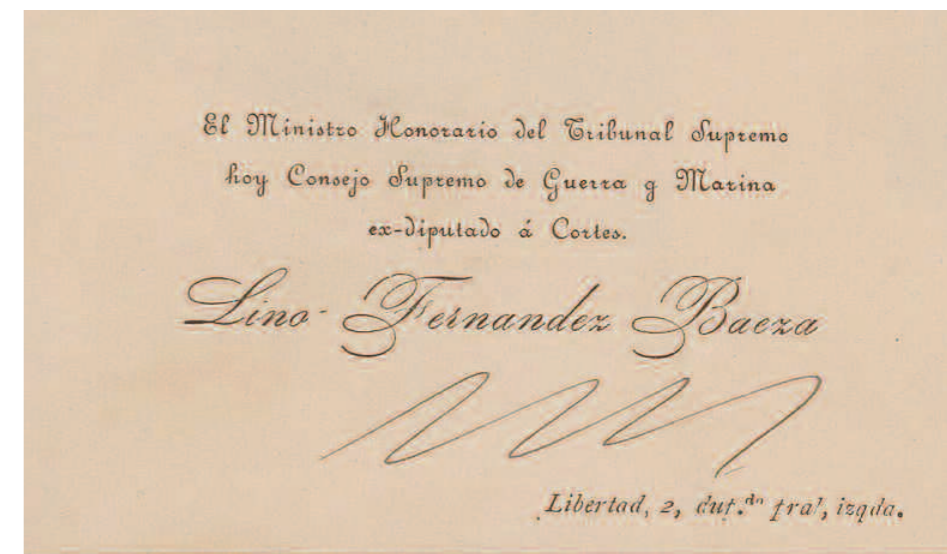 El Ministro Honorario del Tribunal Supremo
hoy Consejo Supremo de Guerra y Marina
ex-diputado á Cortes.
Lino Fernandez Baeza
Libertad, 2, izqda.